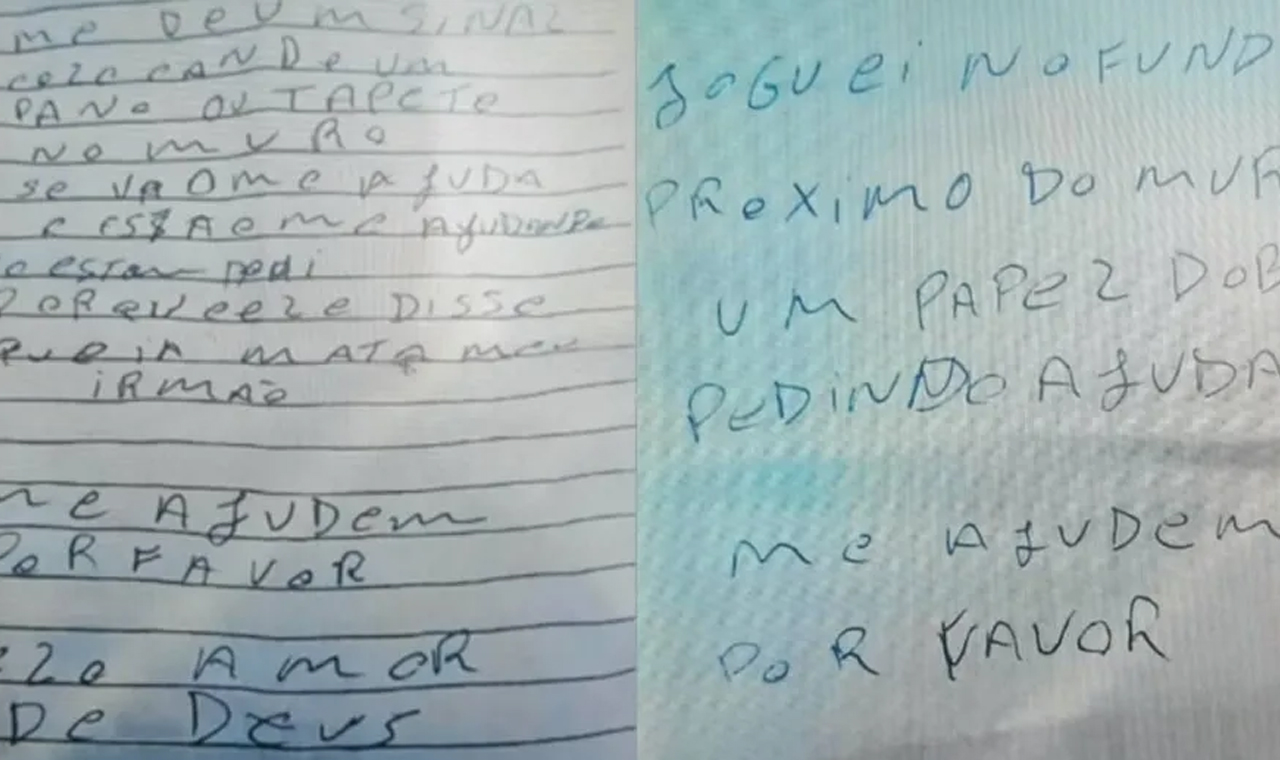 me DeUM SiNAL
coloCANDe um
PANo OU TAPeTe
No mURo
se VAOme AjUDA
e esTAo me AjUDANDo
o estou pedi
PoRQUe ele DISSe
QUe iA MATA meu
iRMAO
me AjUDem
PoR FAVoR
elo AmoR
De Deus
JoGUei NoFUND
PRoximo Do mUR
UM PAPel DoB
PeDiNDo AjUDA
me AjUDem
PoR FAVOR